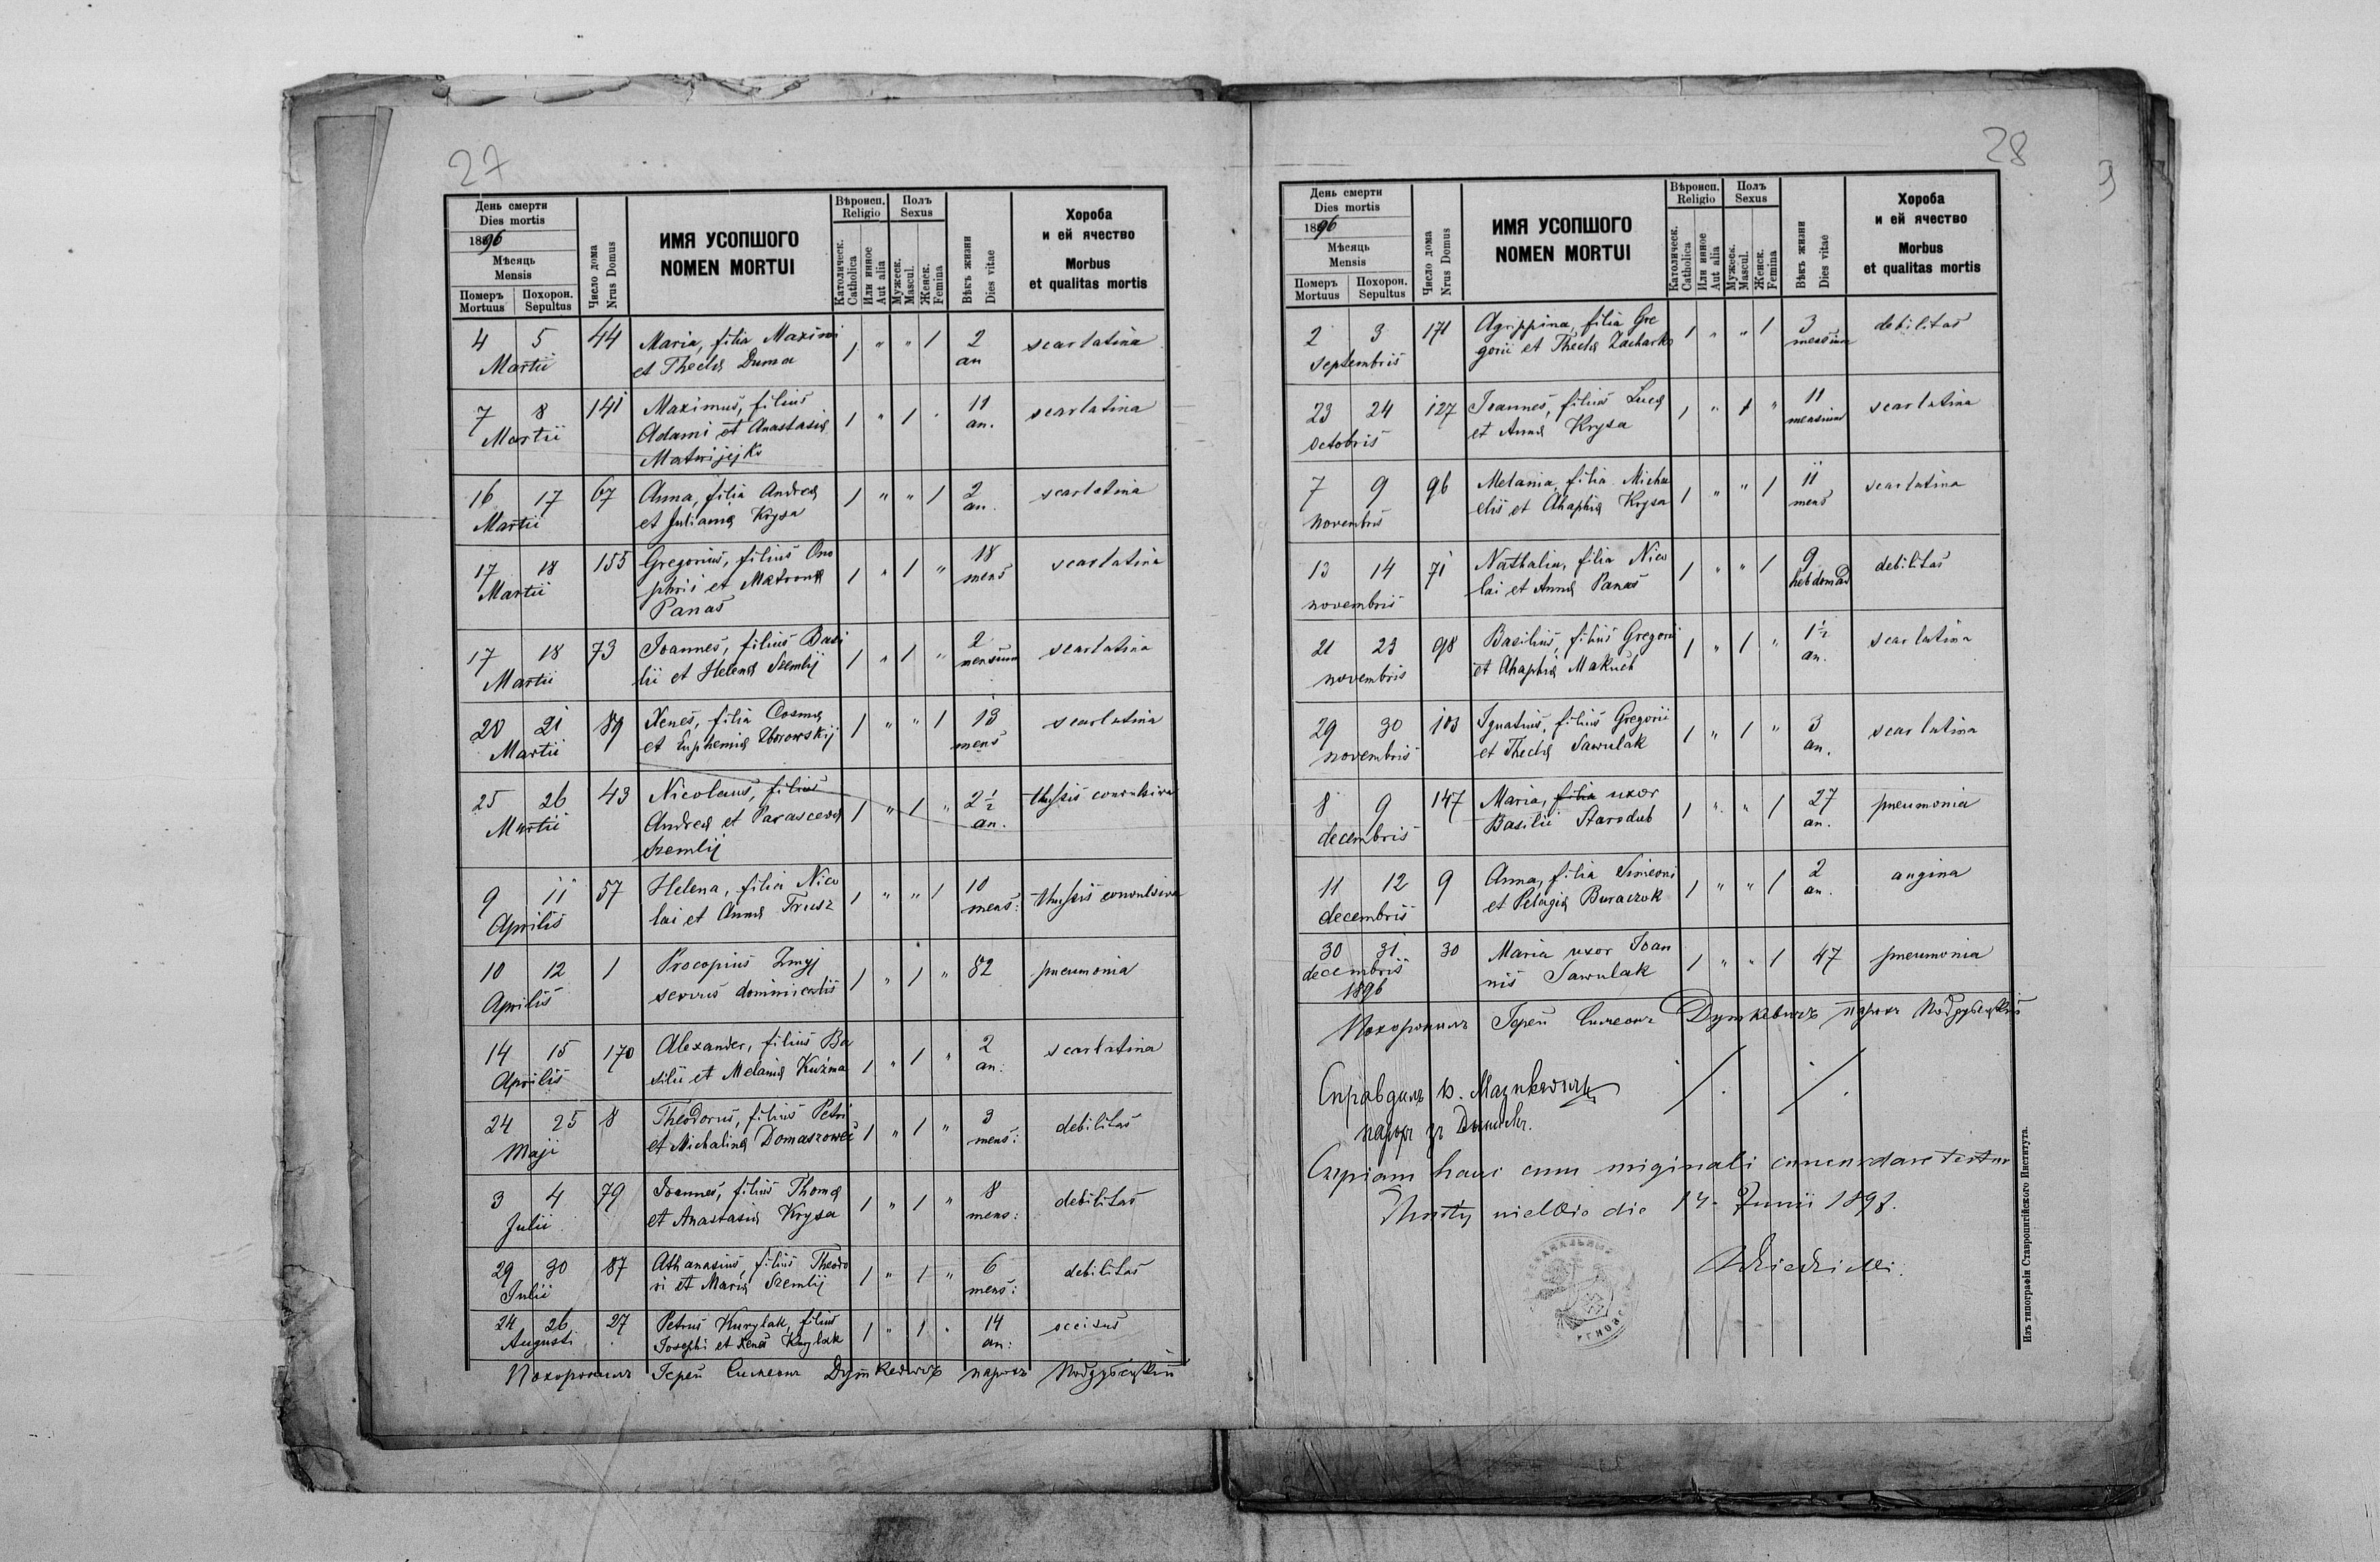 27
День смерти
Dies mortis
1896
Мѣсяць
Mensis
Померъ Mortuus
Похорон. Sepultus
Число дома
Nrus Domus
ИМЯ УСОПШОГО
NOMEN MORTUI
Вѣроисп.
Religio
Католическ.
Catholica
Или инное
Aut alia
Полъ
Sexus
Мужеск.
Mascul.
Женск.
Femina
Вѣкъ жизни
Dies vitae
Хороба
и ей ячество
Morbus
et qualitas mortis
4 5 44 Maria, filia Maximi 1 " " 1 2 scarlatina
Martii et Theclæ Duma an
7 8 141 Maximus, filius 1 " 1 . 11 scarlatina
Martii Adami et Anastasiæ an.
Matwijejko
16 17 67 Anna, filia Andreæ 1 " " 1 2 scarlatina
Martii et Julianæ Krysa an.
17 18 155 Gregorius, filius Ono 1 " 1 " 18 scarlatina
Martii phrii et Matronæ mens
Panas
17 18 73 Joannes, filius Basi 1 " 1 " 2 scarlatina
Martii lii et Helenæ Szemlij mensium
20 21 89 Xenes, filia Cosmæ 1 " " 1 13 scarlatina
Martii et Euphemiæ Zborowskij mens
25 26 43 Nicolaus, filius 1 " 1 " 2½ thussis convulsiva
Martii Andreæ et Parascevæ an.
Szemlij
9 11 57 Helena, filia Nico 1 " " 1 10 thussis convulsiva
Aprilis lai et Annæ Trusz mens:
10 12 1 Procopius Zmyj 1 " 1 " 82 pneumonia
Aprilis servus dominicalis
14 15 170 Alexander, filius Ba 1 " 1 " 2 scarlatina
Aprilis silii et Melaniæ Kuźma an:
24 25 8 Theodorus, filius Petri 1 " 1 " 3 debilitas
Maji et Michalinæ Domaszoweć mens:
3 4 79 Joannes, filius Thomæ 1 " 1 " 8 debilitas
Julii et Anastasiæ Krysa mens:
29 30 87 Athanasius, filius Theodo 1 " 1 " 6 debilitas
Julii ri et Mariæ Szemlij mens:
24 26 27 Petrus Kurylak, filius 1 " 1 . 14 occisus
Augusti Josephi et Xenæ Kurylak an:
Похоронилъ Іерей Симеонъ Дуткевичъ парохъ
28
3
День смерти
Dies mortis
1896
Мѣсяць
Mensis
Померъ Mortuus
Похорон. Sepultus
Число дома
Nrus Domus
ИМЯ УСОПШОГО
NOMEN MORTUI
Вѣроисп.
Religio
Католическ.
Catholica
Или инное
Aut alia
Полъ
Sexus
Мужеск.
Mascul.
Женск.
Femina
Вѣкъ жизни
Dies vitae
Хороба
и ей ячество
Morbus
et qualitas mortis
2 3 171 Agrippina, filia Gre 1 " " 1 3 debilitas
septembris gorii et Theclæ Zacharko mensium
23 24 127 Joannes, filius Lucæ 1 " 1 " 11 scarlatina
octobris et Annæ Krysa mensium
7 9 96 Melania, filia Micha 1 " " 1 11 scarlatina
novembris elis et Ahaphiæ Krysa mens
13 14 71 Nathalia, filia Nico 1 " " 1 9 debilitas
novembris lai et Annæ Panas hebdomad
21 23 98 Basilius, filius Gregorii 1 " 1 " 1½ scarlatina
novembris et Ahaphiæ Makuch an.
29 30 103 Ignatius, filius Gregorii 1 " 1 " 3 scarlatina
novembris et Theclæ Sawulak an.
8 9 147 Maria, filia uxor 1 " " 1 27 pneumonia
decembris Basilii Starodub an.
11 12 9 Anna, filia Simeoni 1 " " 1 2 angina
decembris et Pelagiæ Buraczok an.
30 31 30 Maria uxor Joan 1 " " 1 47 pneumonia
decembris nis Sawulak
1896
Похоронилъ Іерей Симеонъ Дуткевичъ парохъ
Справдилъ В.
парох
Copiam hanc cum originali concordare testor
die 14. Junii 1898.
Изъ типографіи Ставропигійского Института.